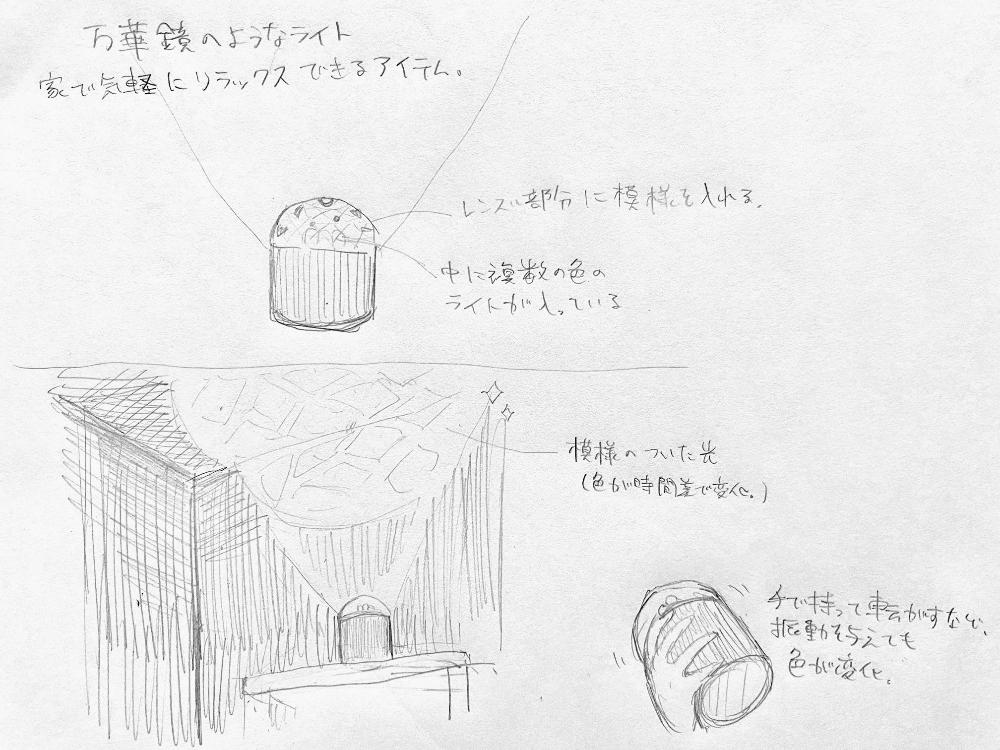 万華鏡のようなライト
家で気軽にリラックスできるアイテム。
レンズ部分に模様を入れる。
中に複数の色の
ライトが入っている
模様のついた光
(色が時間差で変化。)
手で持って転がすなど、
振動を与えても
色が変化。